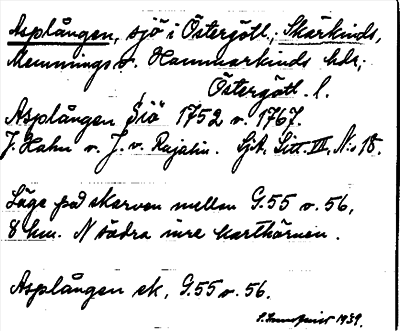 Asplången, sjö i Östergötl.; Skärkinds,
Memmings o. Hammarkinds hdr,
Östergötl. l.
Asplången Siö 1752 o. 1767.
J. Hahn o. J. v. Rajalin. Sjk. Litt. III, N:o 18.
Läge på skarven mellan G.55 o. 56,
8 km. N södra inre karthörnen.
Asplången ek. G.55 o. 56.
1939.